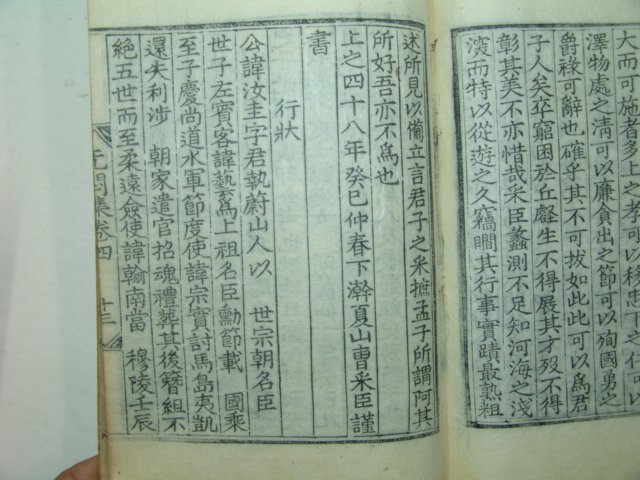 大而可施者多上之
澤物處之淸可以廉貪出之節可以殉國勇之
爵祿可辭也確乎其不可拔如此此可以爲君
子人矣卒窮困於丘壑生不得展其才歿不得
彰其美不亦惜哉采臣蠡測不足知河海之淺
深而特以從遊之久竊瞷其行事實蹟最熟粗
述所見以備立言君子之采摭孟子所謂阿其
所好吾亦不爲也
上之四十八年癸巳仲春下澣夏山曺采臣謹
書
行狀
公諱汝圭字君執蔚山人以 世宗朝名臣
世子左賓客諱藝爲上祖名臣勳節載 國乘
至子慶尙道水軍節度使諱宗實討馬島夷凱
還失利涉 朝家遣官招魂禮葬其後簪組不
絶五世而至柔遠僉使諱翰南當 穆陵壬辰
卷四
十三